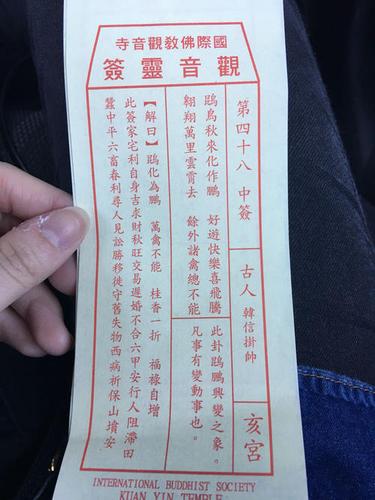 國際佛教觀音寺
觀音靈簽
第四十八 中簽
古人 韓信掛帥
亥宮
鵾鳥秋來化作鵬 好遊快樂喜飛騰
翱翔萬里雲霄去 餘外諸禽總不能
此卦鵾鵬興變之象。
凡事有變動事也。
【解曰】鵾化為鵬 萬禽不能 桂香一折 福祿自增
此簽家宅利自身吉求財秋旺交易遲婚不合六甲安行人阻滯田
蠶中平六畜春利尋人見訟勝移徙守舊失物西病祈保山墳安
INTERNATIONAL BUDDHIST SOCIETY
KUAN YIN TEMPLE